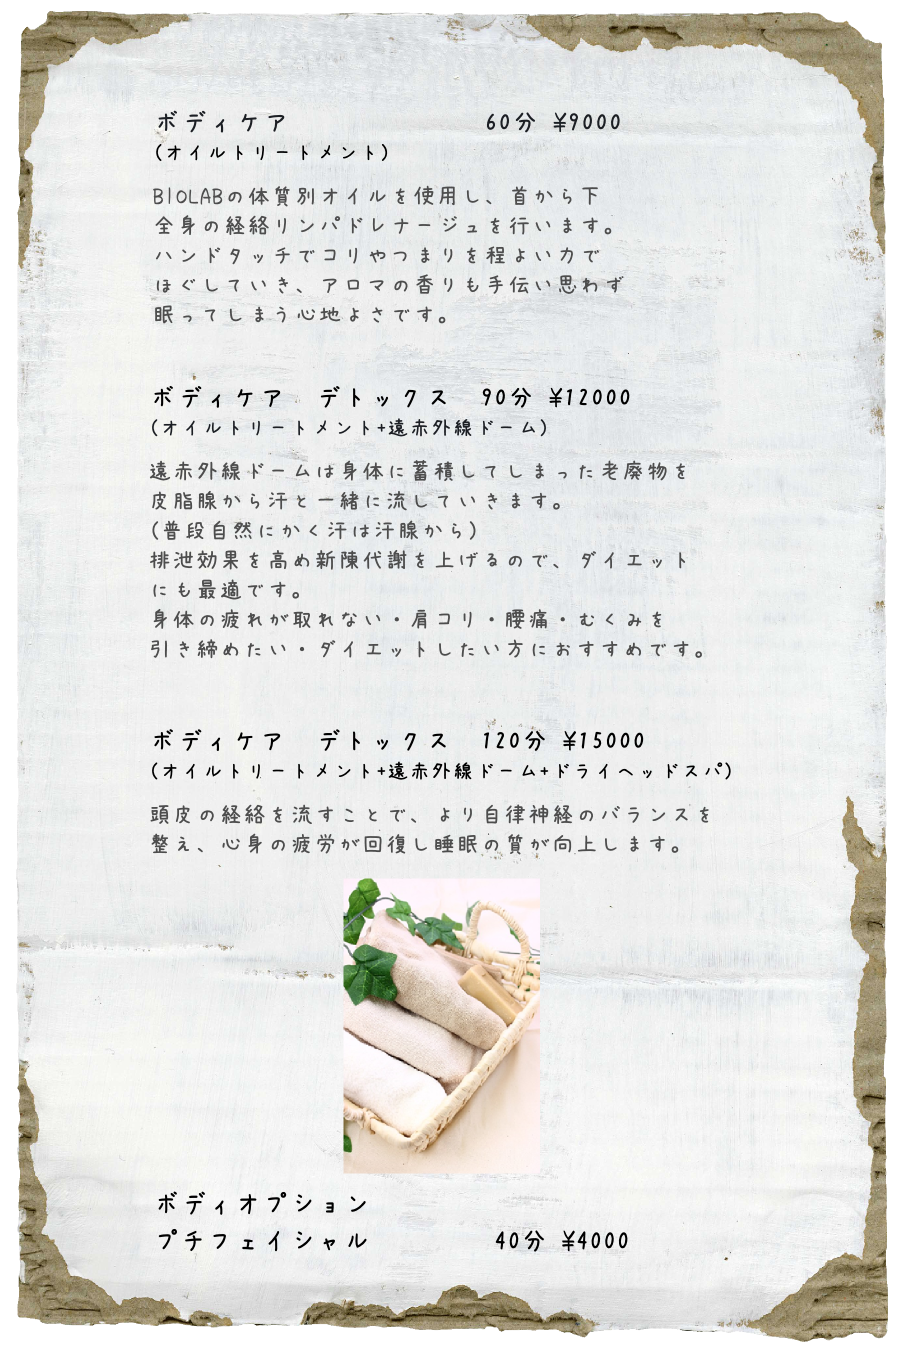 ボディケア 60分 ¥9000
(オイルトリートメント)
BIOLABの体質別オイルを使用し、首から下
全身の経絡リンパドレナージュを行います。
ハンドタッチでコリやつまりを程よい力で
ほぐしていき、アロマの香りも手伝い思わず
眠ってしまう心地よさです。
ボディケア デトックス 90分 ¥12000
(オイルトリートメント+遠赤外線ドーム)
遠赤外線ドームは身体に蓄積してしまった老廃物を
皮脂腺から汗と一緒に流していきます。
(普段自然にかく汗は汗腺から)
排泄効果を高め新陳代謝を上げるので、ダイエット
にも最適です。
身体の疲れが取れない・肩コリ・腰痛・むくみを
引き締めたい・ダイエットしたい方におすすめです。
ボディケア デトックス 120分 ¥15000
(オイルトリートメント+遠赤外線ドーム+ドライヘッドスパ)
頭皮の経絡を流すことで、より自律神経のバランスを
整え、心身の疲労が回復し睡眠の質が向上します。
ボディオプション
プチフェイシャル 40分 ¥4000